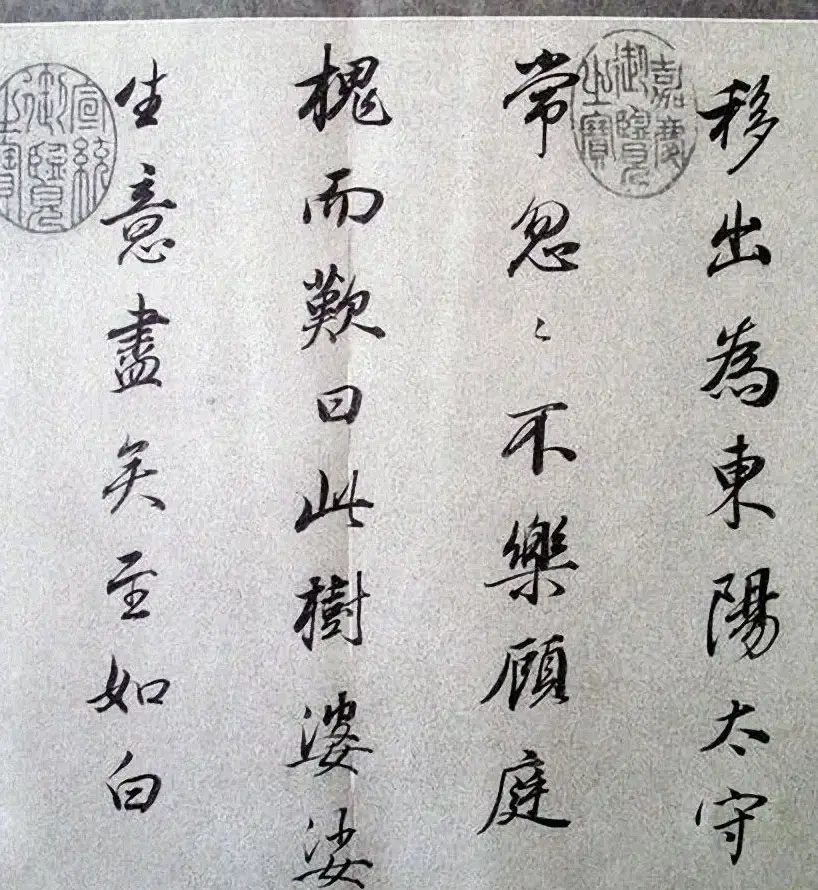 移出為東陽太守
常忽〻不樂顧庭
槐而歎曰此樹婆娑
生意盡矣至如白
嘉慶御覽之寶
宣統御覽之寶